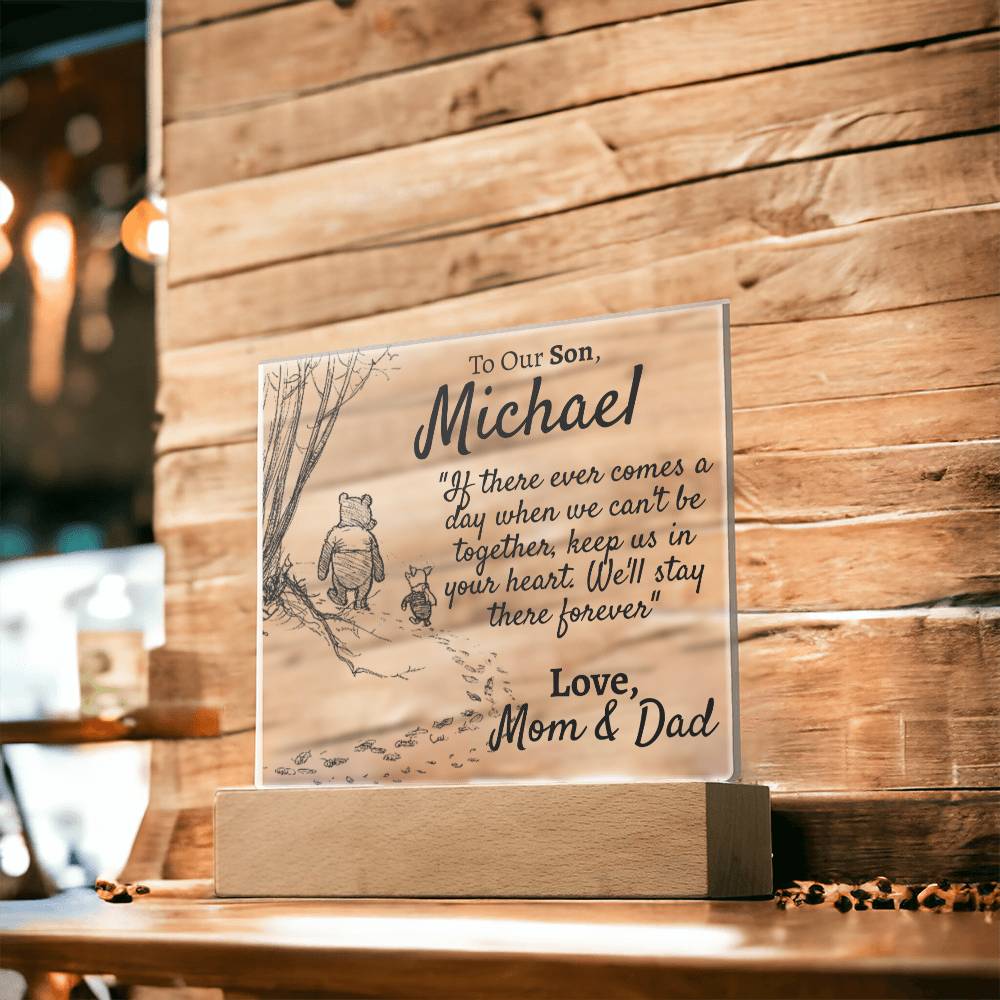 To Our Son,
Michael
"If there ever comes a
day when we can't be
together, keep us in
your heart. We'll stay
there forever"
Love,
Mom & Dad